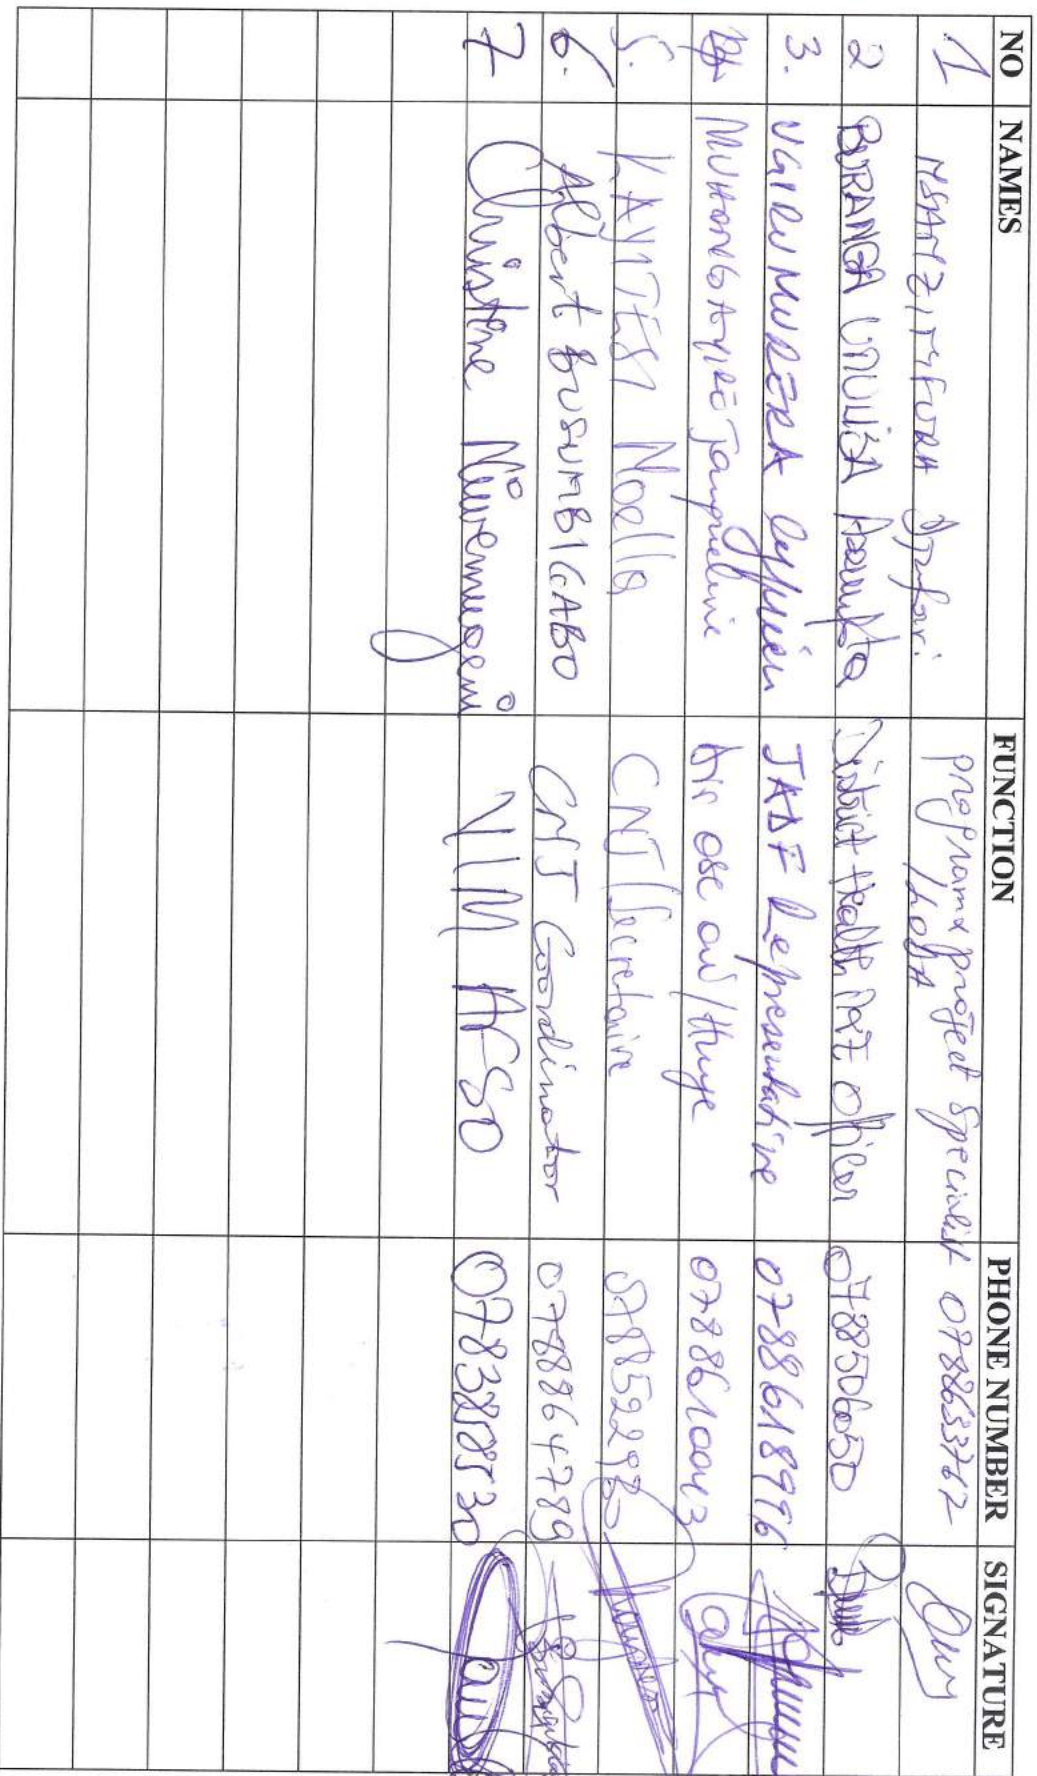 NO NAMES FUNCTION PHONE NUMBER SIGNATURE
1 program project Specialist 0788633762
2 BURANGA UMULISA Assumpta District Health Officer 0788506050
3. NGIRUMURERA Cyprien JADF Representative 0788618996
MUHONGAYIRE Jacqueline Air ose out/Huye 0788610043
5. KAYITESI Noella CNJ/Secretaire 0788522980
6. Albert BUSUMBIGABO CNJ Coordinator 0788864789
7 Christine Niwemugeni VIM AFSO 0783828530